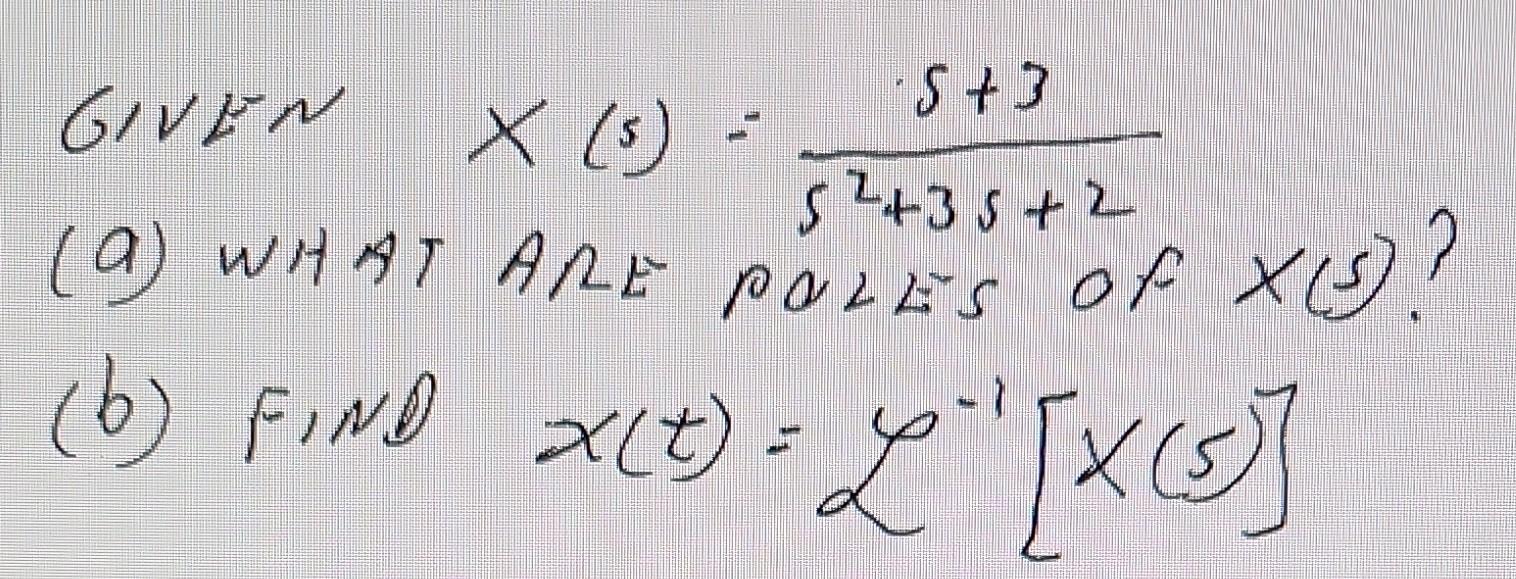 GIVEN X(s) = s+3 / s²+3s+2
(a) WHAT ARE POLES OF X(s)?
(b) FIND x(t) = ℒ⁻¹[X(s)]